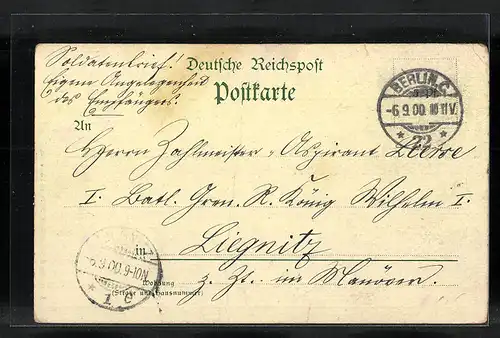 Soldatenbrief!
Eigene Angelegenheit
des Empfängers.
Deutsche Reichspost
Postkarte
BERLIN.C.
-6.9.00.10-11V.
* 22 *
An
Herrn Zahlmeister-Aspirant
I. Batl. Gren. R. König Wilhelm I.
in
Liegnitz
z. Zt. im Manöver.
6.9.00.9-10N.
Wohnung
(Straße und Hausnummer)